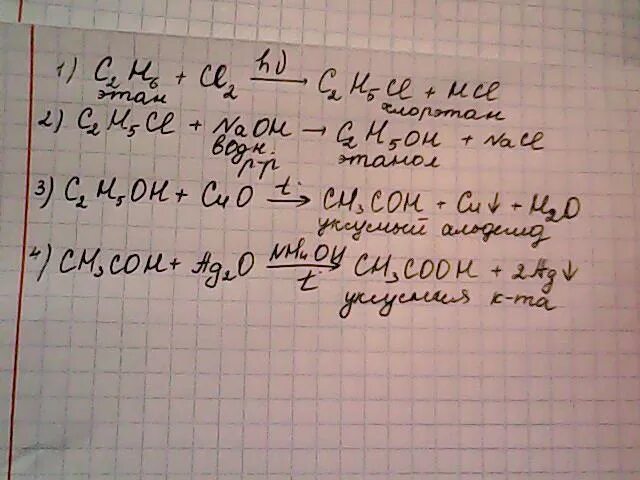 1) C₂H₆ + Cl₂ hν→ C₂H₅Cl + HCl
этан хлорэтан
2) C₂H₅Cl + NaOH → C₂H₅OH + NaCl
водн. р-р этанол
3) C₂H₅OH + CuO t→ CH₃COH + Cu↓ + H₂O
уксусный альдегид
4) CH₃COH + Ag₂O NH₄OH→ t CH₃COOH + 2Ag↓
уксусная к-та